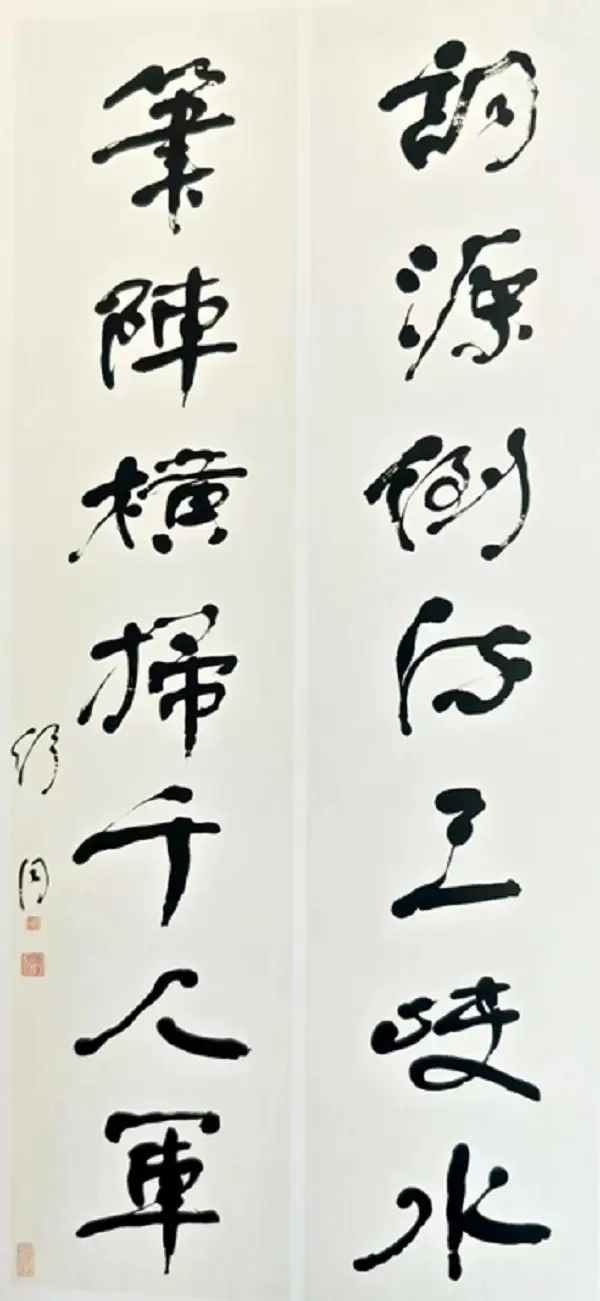 詞源倒流三峽水
筆陣横掃千人軍
舒同